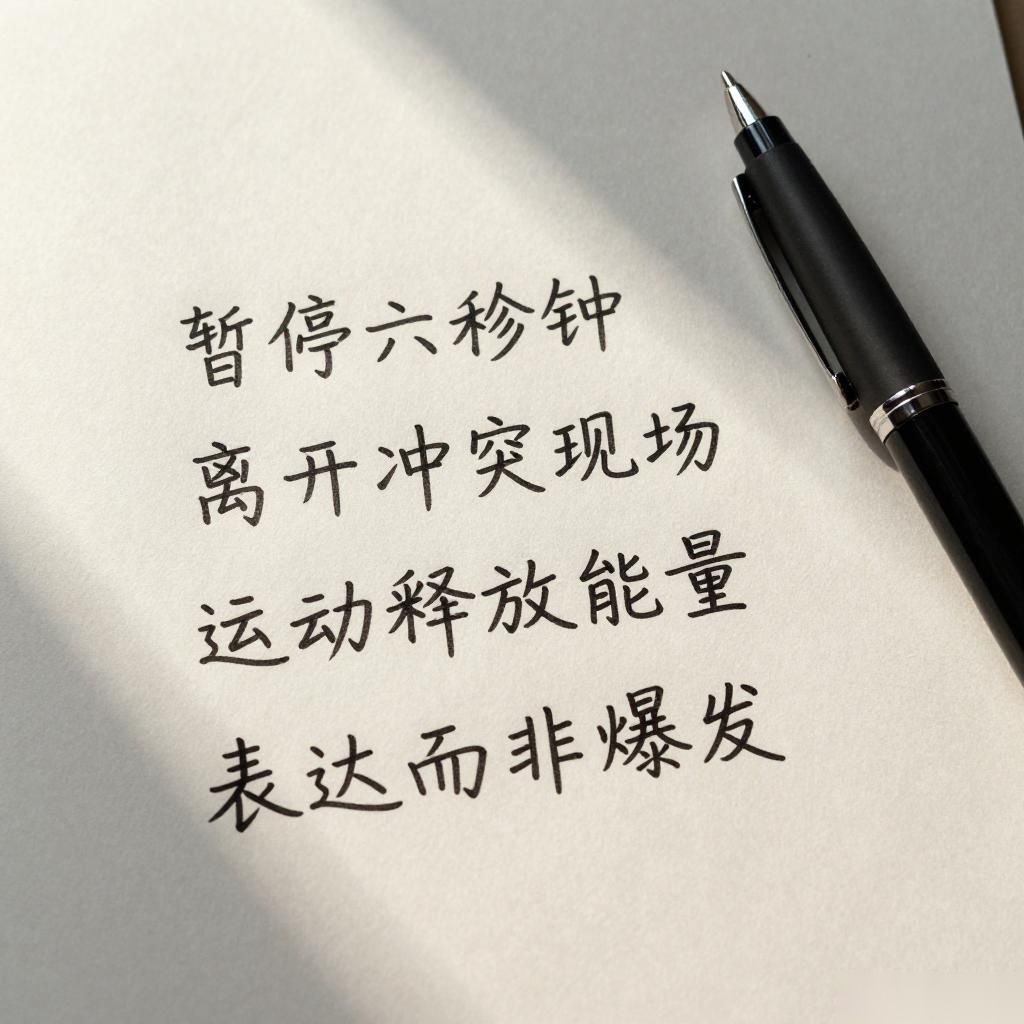 暂停六秒钟
离开冲突现场
运动释放能量
表达而非爆发